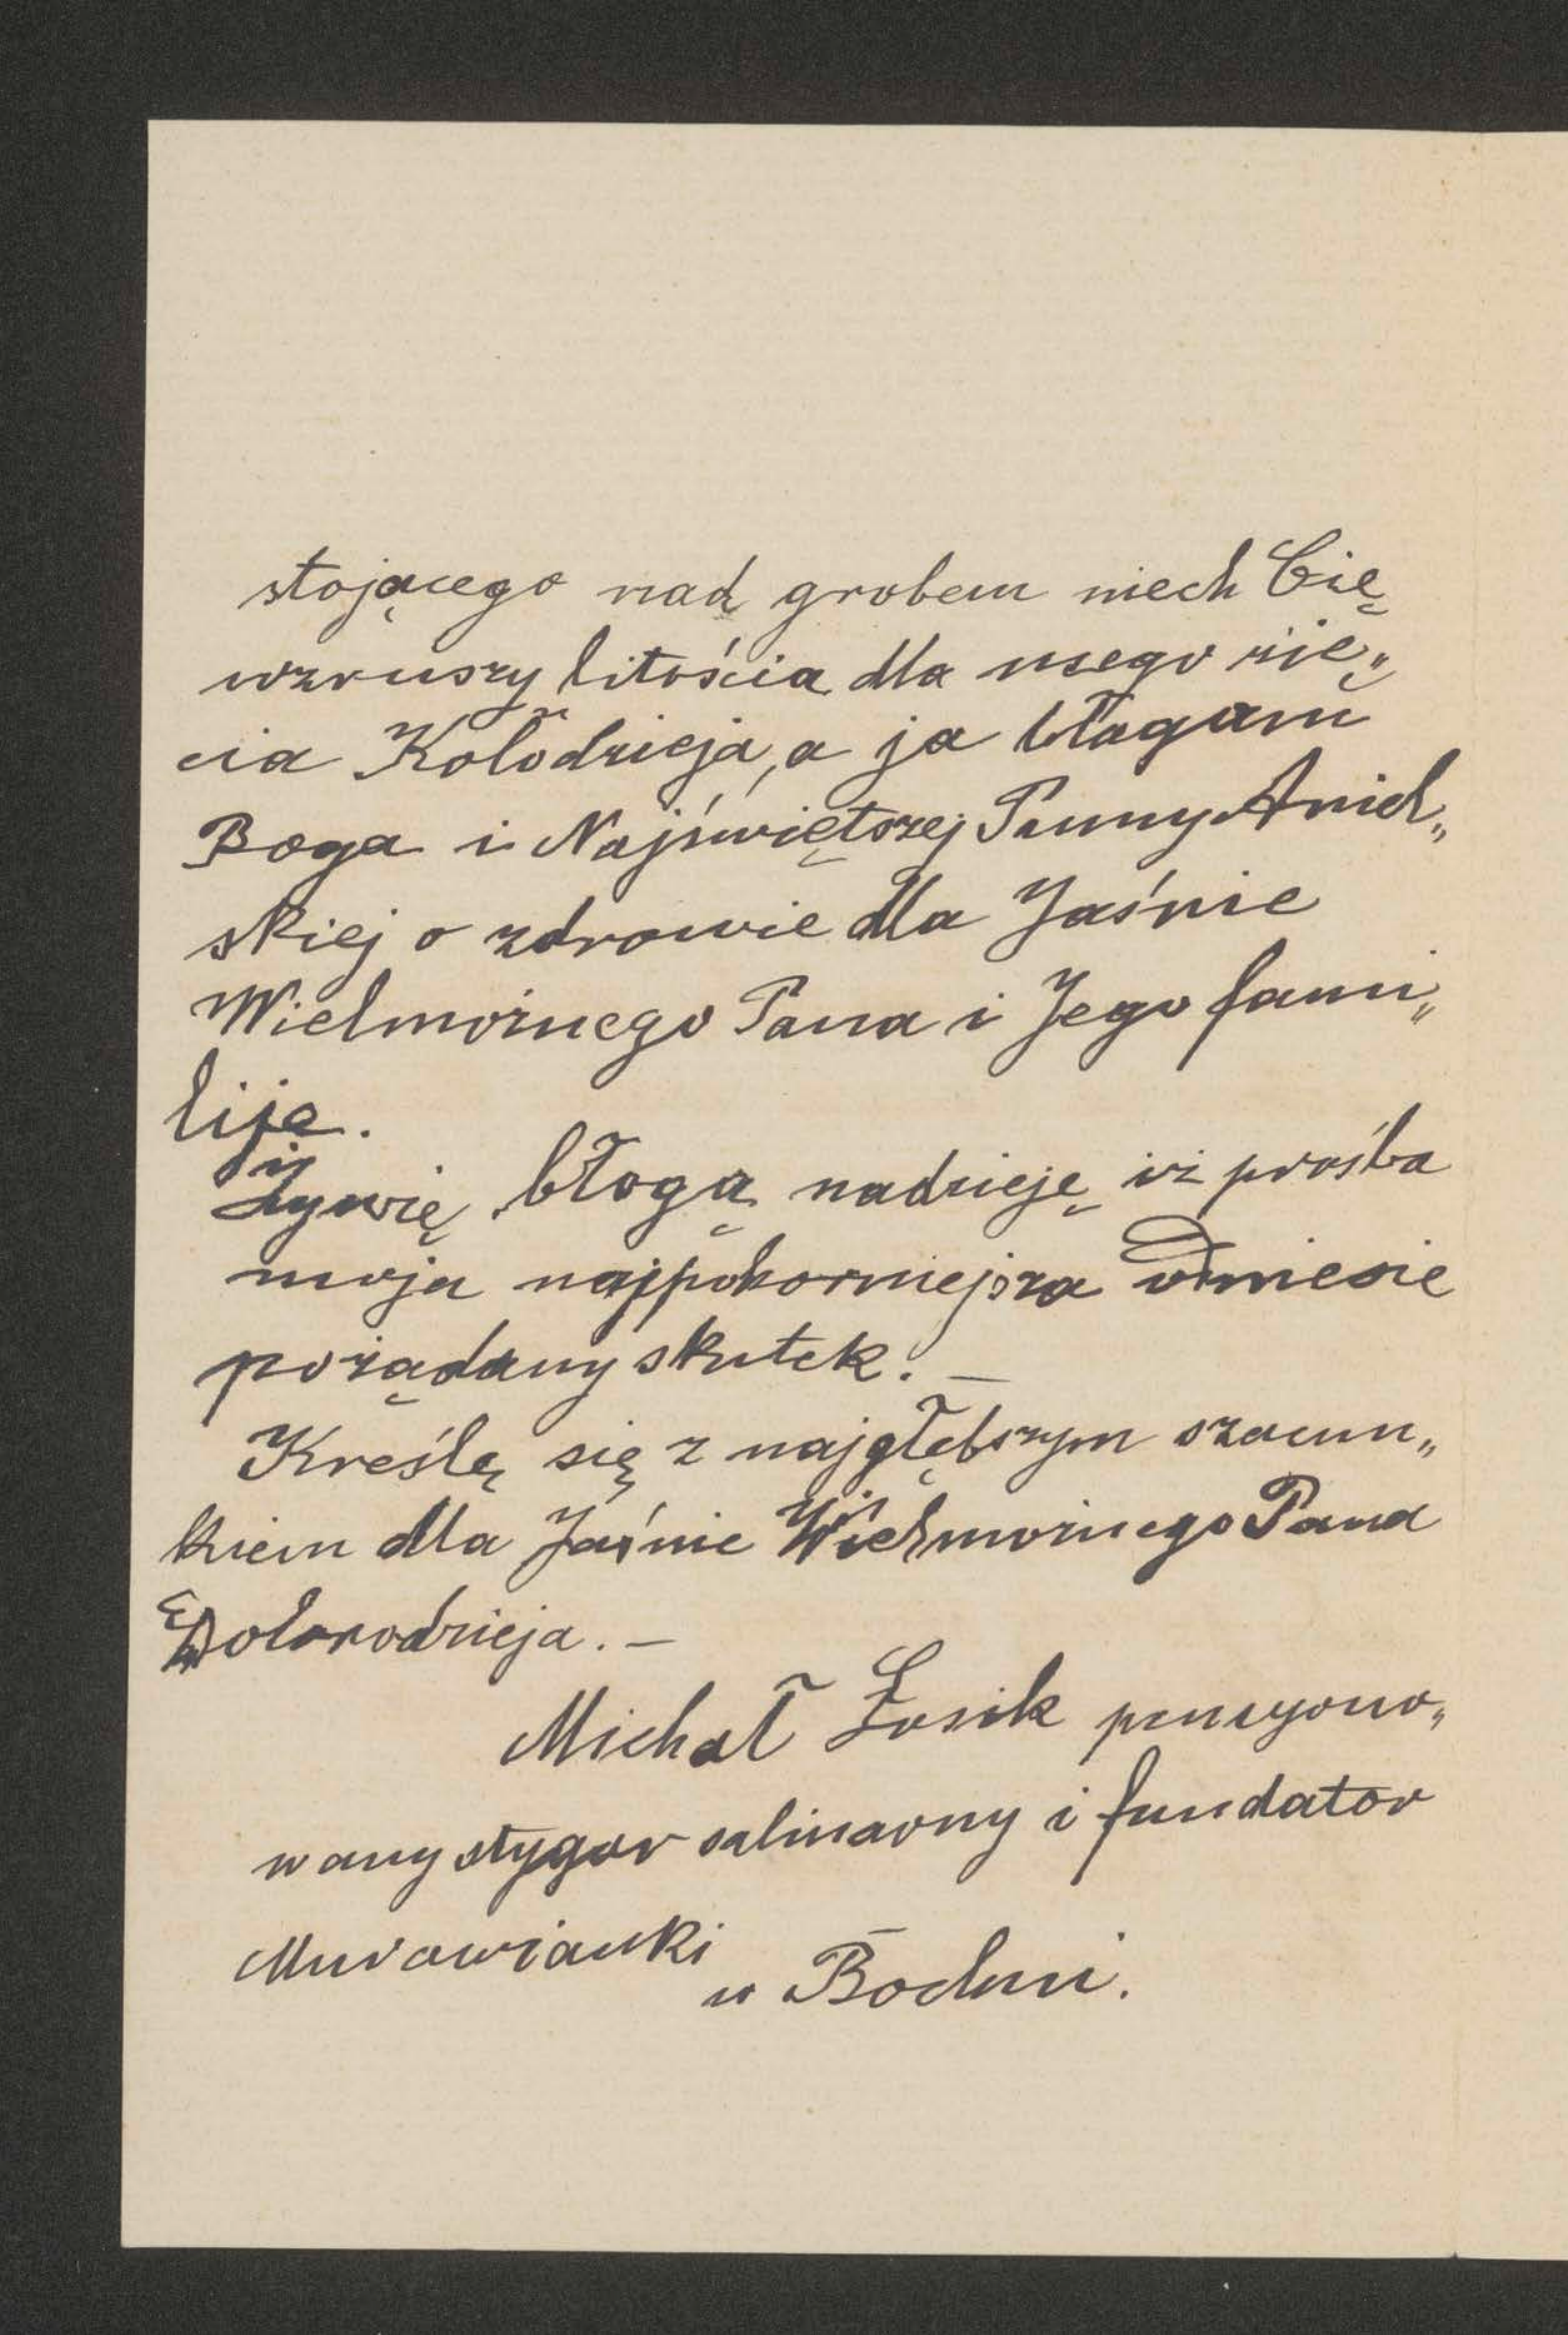 stojącego nad grobem niech Cię
wzruszy litością dla mego zię„
cia Kołodzieja, a ja błagam
Boga i Najświętszej Panny Aniel„
skiej o zdrowie dla Jaśnie
Wielmożnego Pana i Jego fami„
liję.
Żywię błogą nadzieję iż prośba
moja najpokorniejsza odniesie
pożądany skutek. —
Kreślę się z najgłębszym szacun„
kiem dla Jaśnie Wielmożnego Pana
Dobrodzieja. —
Michał Łosik pensyono„
wany sztygar salinarny i fundator
Murowianki
w Bochni.